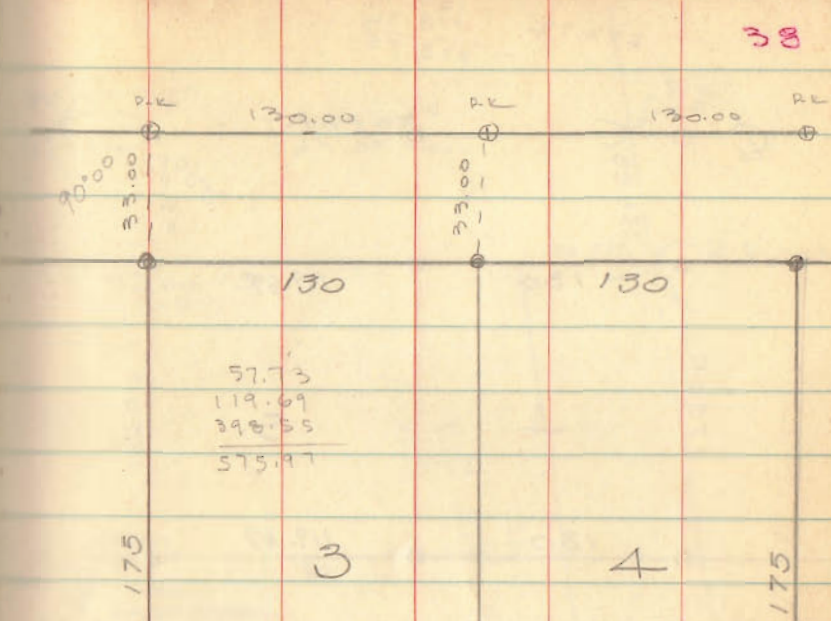 38
P.K P.K P.K
130.00 130.00
90°00
33.00 33.00
130 130
57.73
119.69
398.55
575.97
175 3 4 175